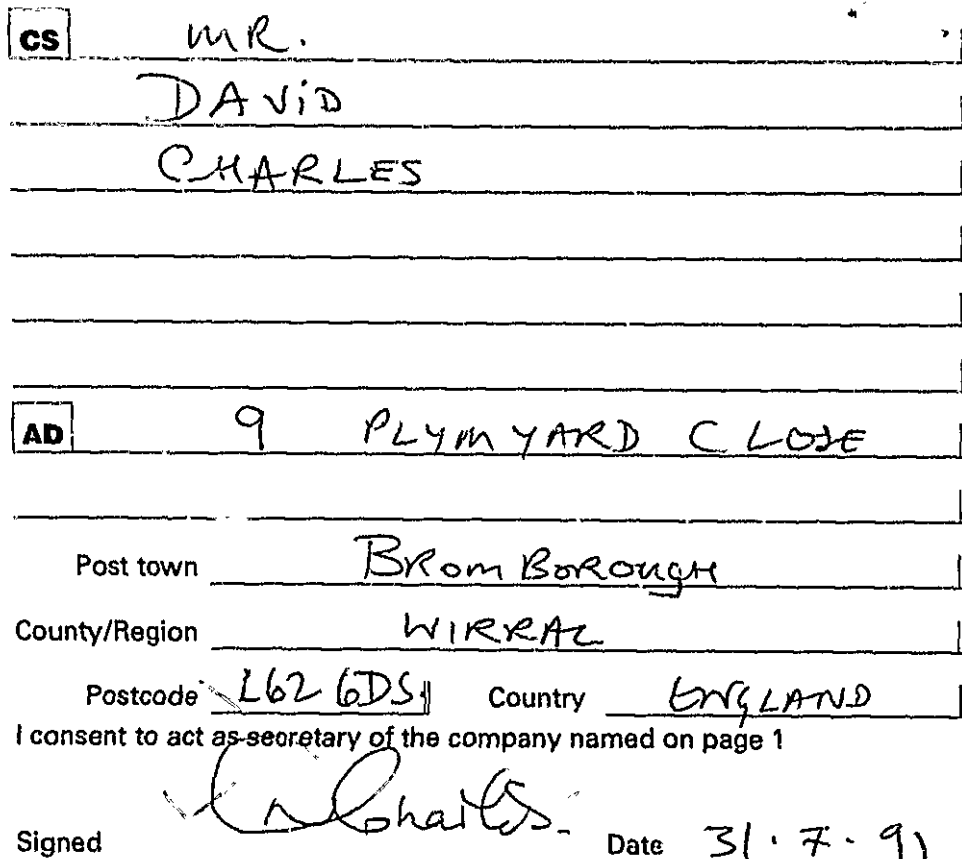 CS MR.
DAVID
CHARLES
AD 9 PLYMYARD CLOSE
Post town BROMBOROUGH
County/Region WIRRAL
Postcode L62 6DS. Country ENGLAND
I consent to act as secretary of the company named on page 1
Signed Charles. Date 31.7.91